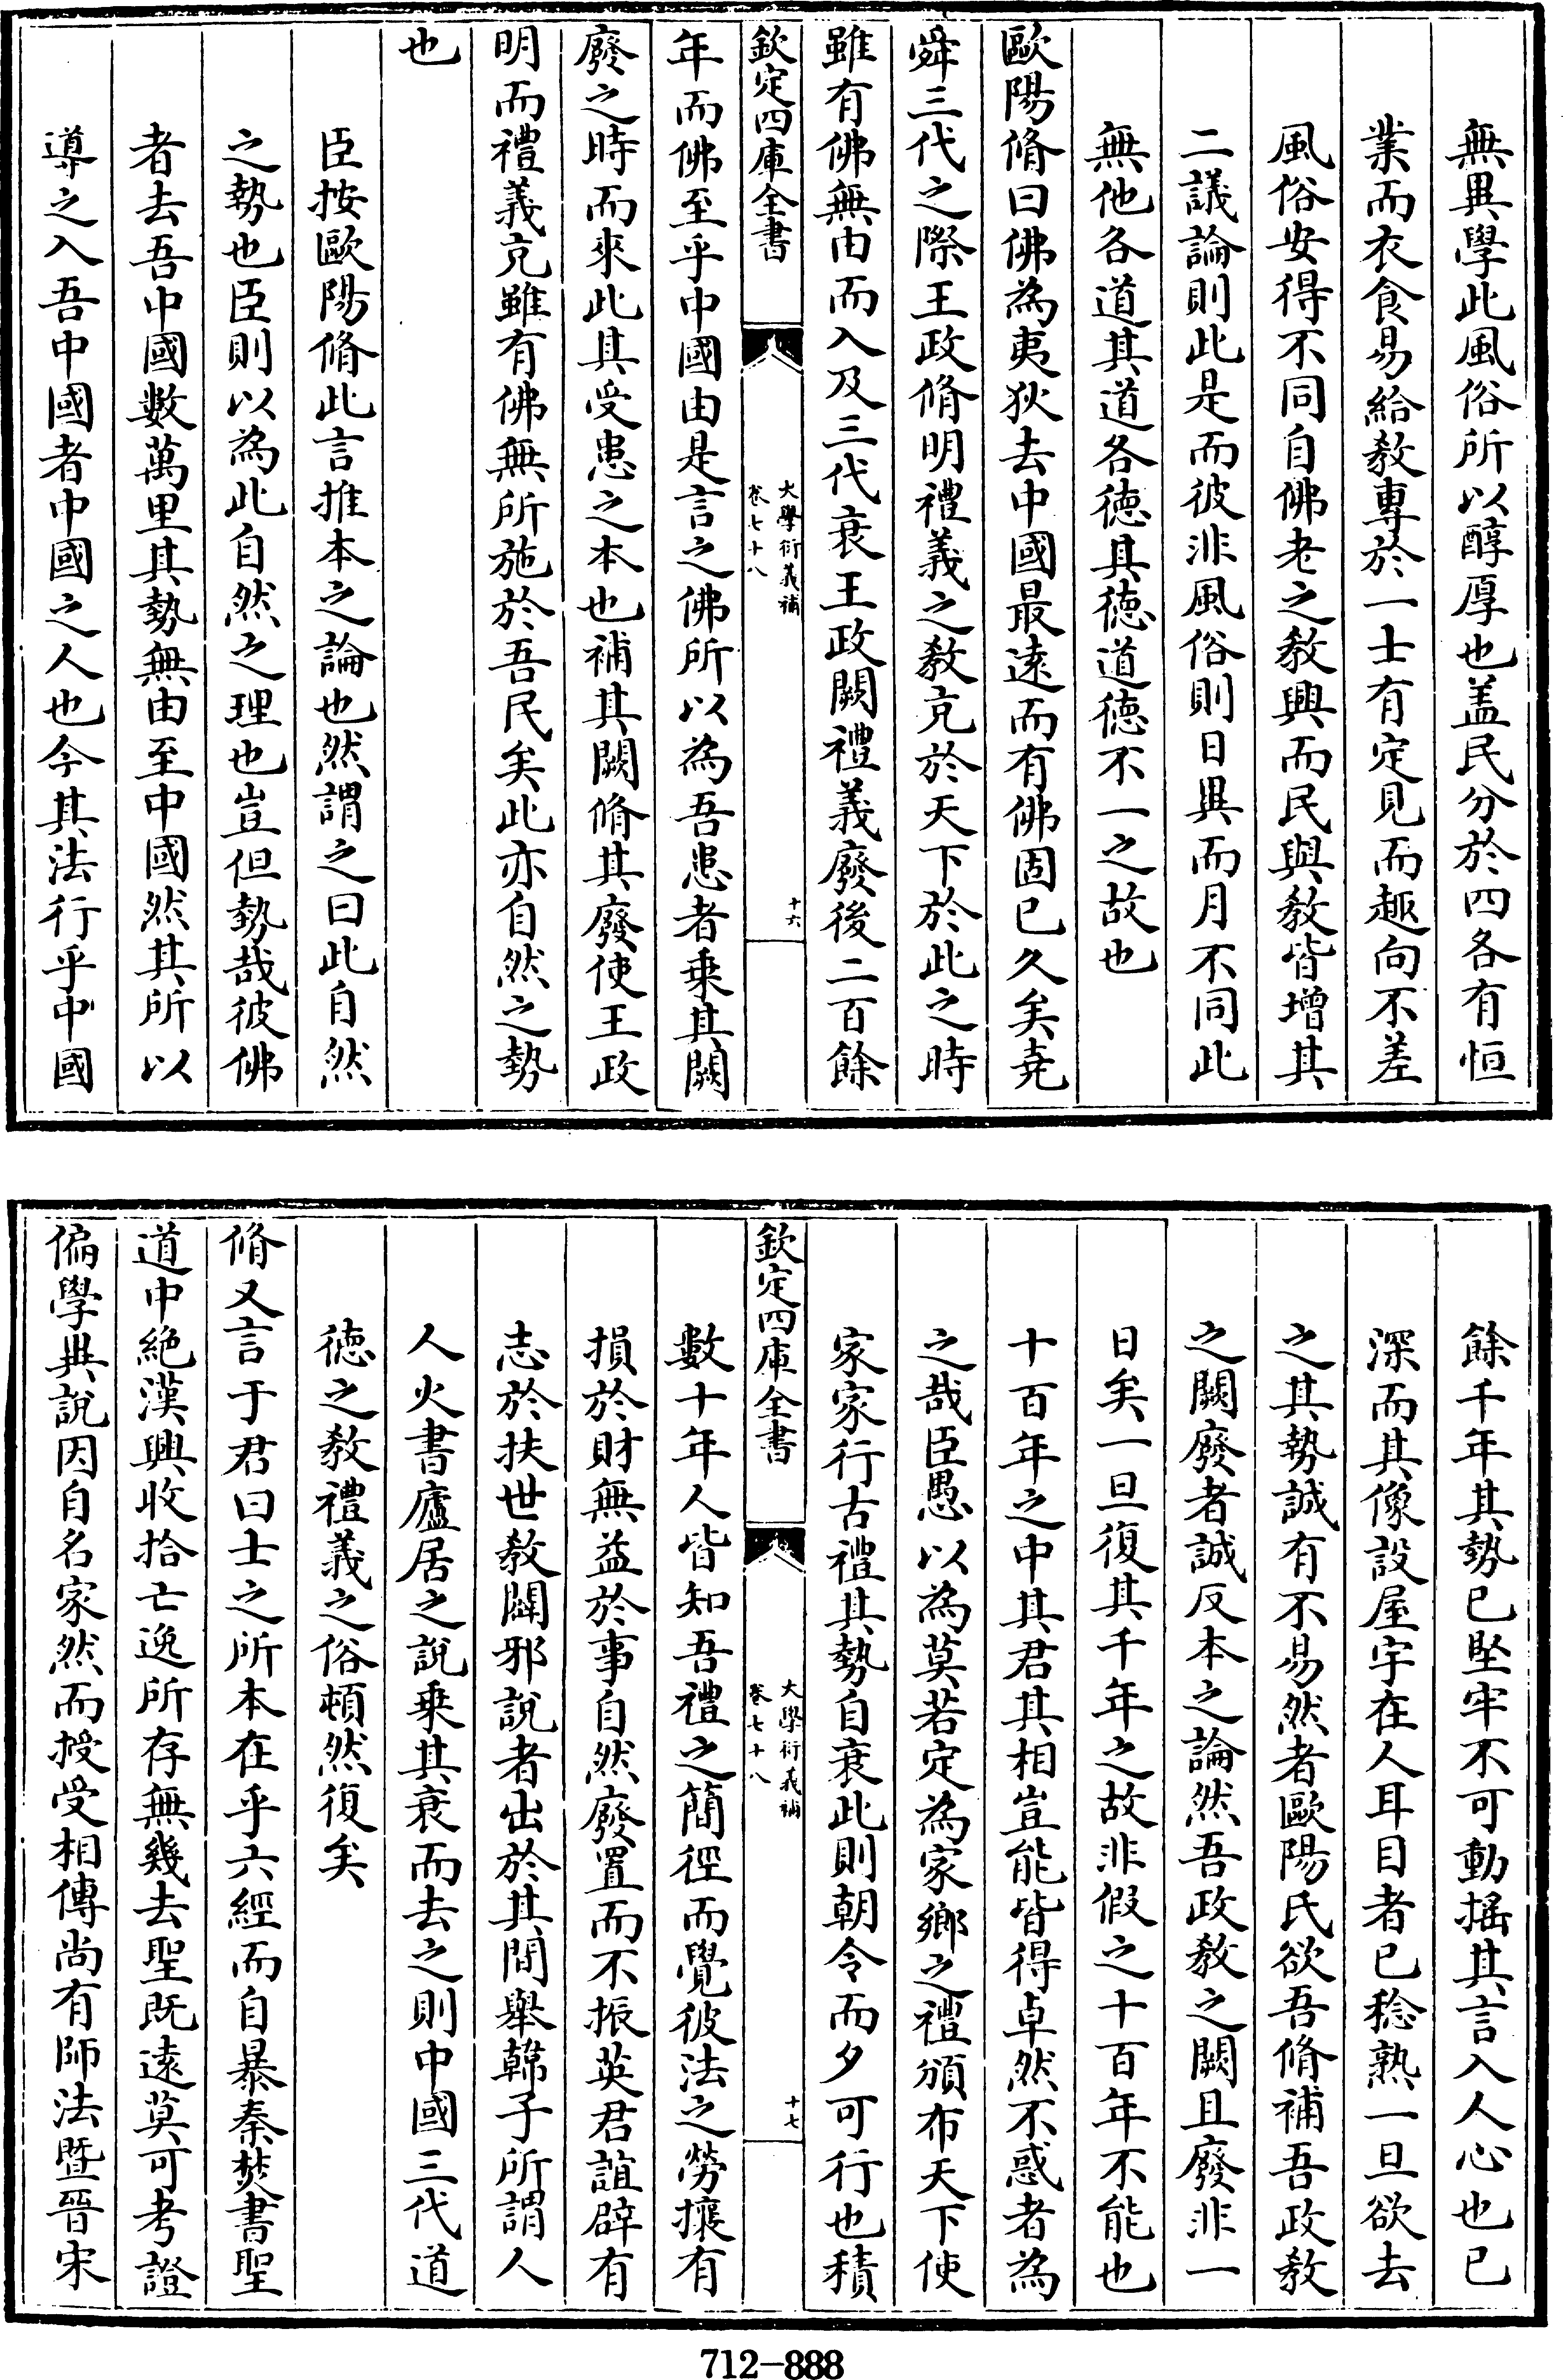 無異學此風俗所以醇厚也盖民分於四各有恒
業而衣食易給教專於一士有定見而趣向不差
風俗安得不同自佛老之教興而民與教皆增其
二議論則此是而彼非風俗則日異而月不同此
無他各道其道各徳其徳道徳不一之故也
歐陽脩曰佛為夷狄去中國最逺而有佛固已久矣堯
舜三代之際王政脩明禮義之教充於天下於此之時
雖有佛無由而入及三代衰王政闕禮義廢後二百餘
欽定四庫全書
大學衍義補
卷七十八
十六
年而佛至乎中國由是言之佛所以為吾患者乗其闕
廢之時而來此其受患之本也補其闕脩其廢使王政
明而禮義充雖有佛無所施於吾民矣此亦自然之勢
也
臣按歐陽脩此言推本之論也然謂之曰此自然
之勢也臣則以為此自然之理也豈但勢哉彼佛
者去吾中國數萬里其勢無由至中國然其所以
導之入吾中國者中國之人也今其法行乎中國
餘千年其勢已堅牢不可動揺其言入人心也已
深而其像設屋宇在人耳目者已稔熟一旦欲去
之其勢誠有不易然者歐陽氏欲吾脩補吾政教
之闕廢者誠反本之論然吾政教之闕且廢非一
日矣一旦復其千年之故非假之十百年不能也
十百年之中其君其相豈能皆得卓然不惑者為
之哉臣愚以為莫若定為家鄉之禮頒布天下使
家家行古禮其勢自衰此則朝令而夕可行也積
欽定四庫全書
大學衍義補
卷七十八
十七
數十年人皆知吾禮之簡徑而覺彼法之勞攘有
損於財無益於事自然廢置而不振英君誼辟有
志於扶世教闢邪說者出於其間舉韓子所謂人
人火書廬居之說乗其衰而去之則中國三代道
徳之教禮義之俗頓然復矣
脩又言于君曰士之所本在乎六經而自暴秦焚書聖
道中絶漢興收拾亡逸所存無幾去聖既逺莫可考證
偏學異說因自名家然而授受相傳尚有師法暨晉宋
712-888